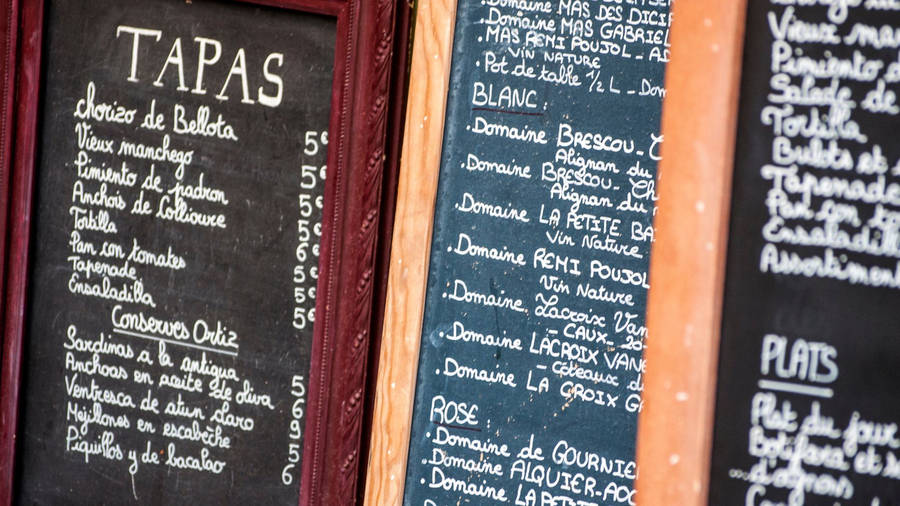 TAPAS
chorizo de Bellota 5€
Vieux manchego 5€
Pimiento de padron 5€
Anchois de Collioure 6€
Tortilla 5€
Pan con tomates 5€
Tapenade 5€
Ensaladilla 5€
Conserves Ortiz
Sardinas a la antigua 5
Anchoas en aceite de oliva 6
Ventresca de atun claro 9
Mejillones en escabèche 5
Piquillos y de bacalao 6
Domaine MAS DES
Domaine MAS GABRIEL
MAS REMI POUJOL - 
VIN NATURE
. Pot de table 1/2 L _ Dom
BLANC :
. Domaine BRESCOU -
Alignan du
. Domaine BRESCOU - Ch
Alignan du
. Domaine LA PETITE BA
Vin Nature
. Domaine REMI POUJOL
Vin Nature
. Domaine Lacroix Van
- CAUX - 20
. Domaine LACROIX VANE
- coteaux d
. Domaine LA CROIX G
ROSE
. Domaine de GOURNIE
. Domaine ALQUIER-
. Domaine LA PETITE
Vieux man
Pimiento d
Salade de
Tortilla
Bulots et
Tapenade
Pan con to
Ensaladill
Assortiment
PLATS
Plat du jour
Botifara et
d'oignons